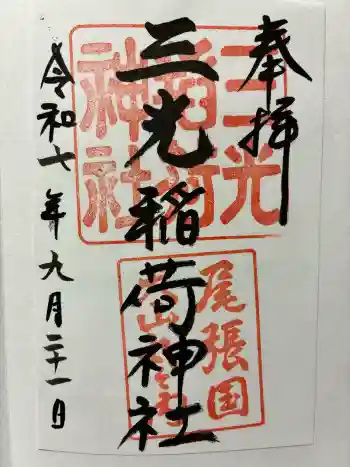 奉拝
三光稲荷神社
令和七年九月二十一日
三光
稲荷
神社
尾張国